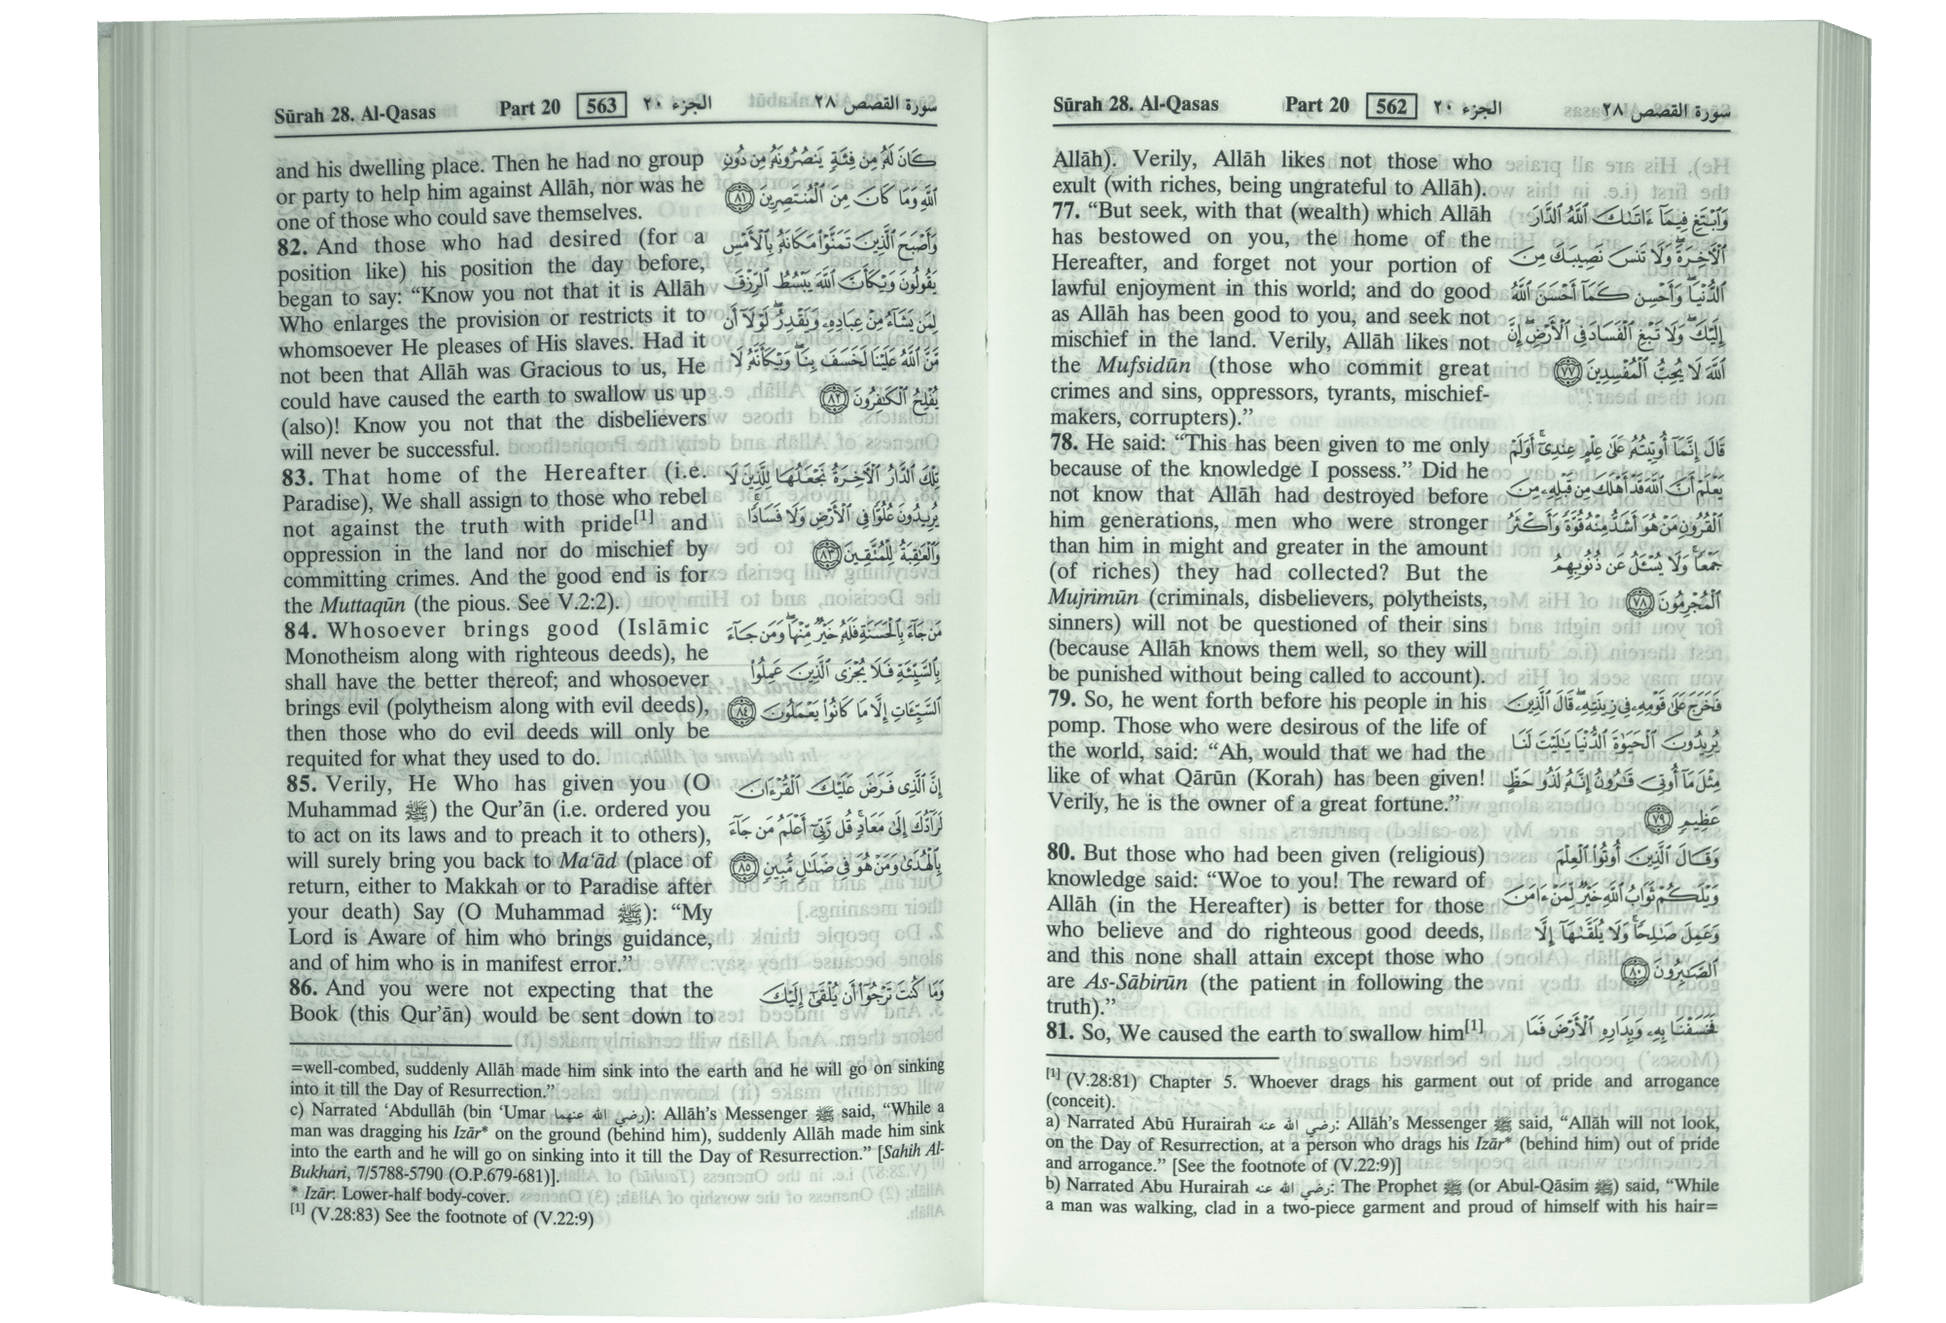 Sūrah 28. Al-Qasas Part 20 562 الجزء ٢٠ سورة القصص ٢٨
Allāh). Verily, Allāh likes not those who
exult (with riches, being ungrateful to Allāh).
77. “But seek, with that (wealth) which Allāh
has bestowed on you, the home of the
Hereafter, and forget not your portion of
lawful enjoyment in this world; and do good
as Allāh has been good to you, and seek not
mischief in the land. Verily, Allāh likes not
the Mufsidūn (those who commit great
crimes and sins, oppressors, tyrants, mischief-
makers, corrupters).”
78. He said: “This has been given to me only
because of the knowledge I possess.” Did he
not know that Allāh had destroyed before
him generations, men who were stronger
than him in might and greater in the amount
(of riches) they had collected? But the
Mujrimūn (criminals, disbelievers, polytheists,
sinners) will not be questioned of their sins
(because Allāh knows them well, so they will
be punished without being called to account).
79. So, he went forth before his people in his
pomp. Those who were desirous of the life of
the world, said: “Ah, would that we had the
like of what Qārūn (Korah) has been given!
Verily, he is the owner of a great fortune.”
80. But those who had been given (religious)
knowledge said: “Woe to you! The reward of
Allāh (in the Hereafter) is better for those
who believe and do righteous good deeds,
and this none shall attain except those who
are As-Sābirūn (the patient in following the
truth).”
81. So, We caused the earth to swallow him[1]
وَٱبْتَغِ فِيمَآ ءَاتَىٰكَ ٱللَّهُ ٱلدَّارَ
ٱلْأَخِرَةَ ۖ وَلَا تَنسَ نَصِيبَكَ مِنَ
ٱلدُّنْيَا ۖ وَأَحْسِن كَمَآ أَحْسَنَ ٱللَّهُ
إِلَيْكَ ۖ وَلَا تَبْغِ ٱلْفَسَادَ فِى ٱلْأَرْضِ ۖ إِنَّ
ٱللَّهَ لَا يُحِبُّ ٱلْمُفْسِدِينَ ٧٧
قَالَ إِنَّمَآ أُوتِيتُهُۥ عَلَىٰ عِلْمٍ عِندِىٓ ۚ أَوَلَمْ
يَعْلَمْ أَنَّ ٱللَّهَ قَدْ أَهْلَكَ مِن قَبْلِهِۦ مِنَ
ٱلْقُرُونِ مَنْ هُوَ أَشَدُّ مِنْهُ قُوَّةً وَأَكْثَرُ
جَمْعًا ۚ وَلَا يُسْـَٔلُ عَن ذُنُوبِهِمُ
ٱلْمُجْرِمُونَ ٧٨
فَخَرَجَ عَلَىٰ قَوْمِهِۦ فِى زِينَتِهِۦ ۖ قَالَ ٱلَّذِينَ
يُرِيدُونَ ٱلْحَيَوٰةَ ٱلدُّنْيَا يَـٰلَيْتَ لَنَا
مِثْلَ مَآ أُوتِىَ قَـٰرُونُ إِنَّهُۥ لَذُو حَظٍّ
عَظِيمٍ ٧٩
وَقَالَ ٱلَّذِينَ أُوتُوا۟ ٱلْعِلْمَ
وَيْلَكُمْ ثَوَابُ ٱللَّهِ خَيْرٌ لِّمَنْ ءَامَنَ
وَعَمِلَ صَـٰلِحًا وَلَا يُلَقَّىٰهَآ إِلَّا
ٱلصَّـٰبِرُونَ ٨٠
فَخَسَفْنَا بِهِۦ وَبِدَارِهِ ٱلْأَرْضَ فَمَا
[1] (V.28:81) Chapter 5. Whoever drags his garment out of pride and arrogance
(conceit).
a) Narrated Abū Hurairah رضي الله عنه: Allāh’s Messenger ﷺ said, “Allāh will not look,
on the Day of Resurrection, at a person who drags his Izār* (behind him) out of pride
and arrogance.” [See the footnote of (V.22:9)]
b) Narrated Abu Hurairah رضي الله عنه: The Prophet ﷺ (or Abul-Qāsim ﷺ) said, “While
a man was walking, clad in a two-piece garment and proud of himself with his hair=
Sūrah 28. Al-Qasas Part 20 563 الجزء ٢٠ سورة القصص ٢٨
and his dwelling place. Then he had no group
or party to help him against Allāh, nor was he
one of those who could save themselves.
82. And those who had desired (for a
position like) his position the day before,
began to say: “Know you not that it is Allāh
Who enlarges the provision or restricts it to
whomsoever He pleases of His slaves. Had it
not been that Allāh was Gracious to us, He
could have caused the earth to swallow us up
(also)! Know you not that the disbelievers
will never be successful.
83. That home of the Hereafter (i.e.
Paradise), We shall assign to those who rebel
not against the truth with pride[1] and
oppression in the land nor do mischief by
committing crimes. And the good end is for
the Muttaqūn (the pious. See V.2:2).
84. Whosoever brings good (Islāmic
Monotheism along with righteous deeds), he
shall have the better thereof; and whosoever
brings evil (polytheism along with evil deeds),
then those who do evil deeds will only be
requited for what they used to do.
85. Verily, He Who has given you (O
Muhammad ﷺ) the Qur’ān (i.e. ordered you
to act on its laws and to preach it to others),
will surely bring you back to Ma‘ād (place of
return, either to Makkah or to Paradise after
your death) Say (O Muhammad ﷺ): “My
Lord is Aware of him who brings guidance,
and of him who is in manifest error.”
86. And you were not expecting that the
Book (this Qur’ān) would be sent down to
كَانَ لَهُۥ مِن فِئَةٍ يَنصُرُونَهُۥ مِن دُونِ
ٱللَّهِ وَمَا كَانَ مِنَ ٱلْمُنتَصِرِينَ ٨١
وَأَصْبَحَ ٱلَّذِينَ تَمَنَّوْا۟ مَكَانَهُۥ بِٱلْأَمْسِ
يَقُولُونَ وَيْكَأَنَّ ٱللَّهَ يَبْسُطُ ٱلرِّزْقَ
لِمَن يَشَآءُ مِنْ عِبَادِهِۦ وَيَقْدِرُ ۖ لَوْلَآ أَن
مَّنَّ ٱللَّهُ عَلَيْنَا لَخَسَفَ بِنَا ۖ وَيْكَأَنَّهُۥ لَا
يُفْلِحُ ٱلْكَـٰفِرُونَ ٨٢
تِلْكَ ٱلدَّارُ ٱلْأَخِرَةُ نَجْعَلُهَا لِلَّذِينَ لَا
يُرِيدُونَ عُلُوًّا فِى ٱلْأَرْضِ وَلَا فَسَادًا ۚ
وَٱلْعَـٰقِبَةُ لِلْمُتَّقِينَ ٨٣
مَن جَآءَ بِٱلْحَسَنَةِ فَلَهُۥ خَيْرٌ مِّنْهَا ۖ وَمَن جَآءَ
بِٱلسَّيِّئَةِ فَلَا يُجْزَى ٱلَّذِينَ عَمِلُوا۟
ٱلسَّيِّـَٔاتِ إِلَّا مَا كَانُوا۟ يَعْمَلُونَ ٨٤
إِنَّ ٱلَّذِى فَرَضَ عَلَيْكَ ٱلْقُرْءَانَ
لَرَآدُّكَ إِلَىٰ مَعَادٍ ۚ قُل رَّبِّىٓ أَعْلَمُ مَن جَآءَ
بِٱلْهُدَىٰ وَمَنْ هُوَ فِى ضَلَـٰلٍ مُّبِينٍ ٨٥
وَمَا كُنتَ تَرْجُوٓا۟ أَن يُلْقَىٰٓ إِلَيْكَ
=well-combed, suddenly Allāh made him sink into the earth and he will go on sinking
into it till the Day of Resurrection.”
c) Narrated ‘Abdullāh (bin ‘Umar رضي الله عنهما): Allāh’s Messenger ﷺ said, “While a
man was dragging his Izār* on the ground (behind him), suddenly Allāh made him sink
into the earth and he will go on sinking into it till the Day of Resurrection.” [Sahih Al-
Bukhari, 7/5788-5790 (O.P.679-681)].
* Izār: Lower-half body-cover.
[1] (V.28:83) See the footnote of (V.22:9)